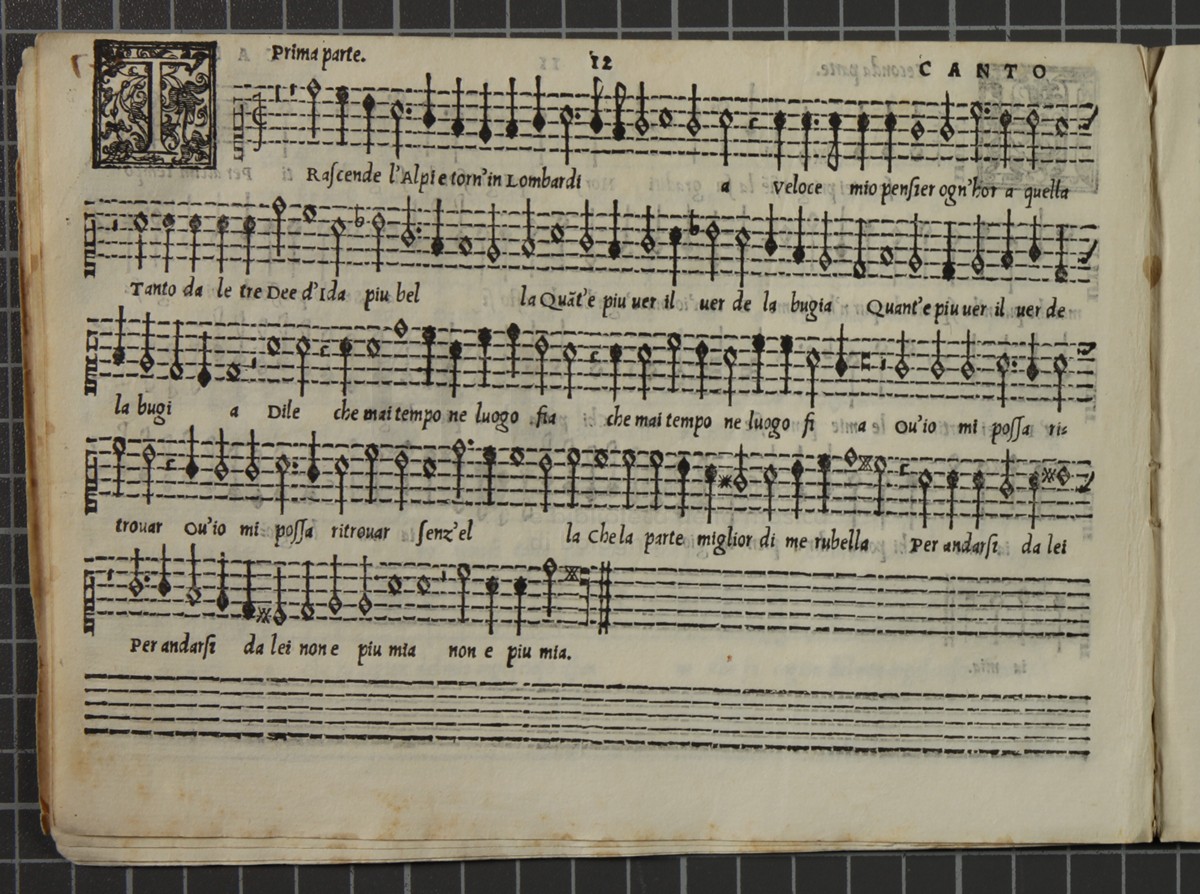 Prima parte. 12 CANTO
TRaſcende l'Alpi e torn'in Lombardi a veloce mio penſier ogn'hor a quella
Tanto da le tre Dee d'Ida piu bel la Quãt'e piu uer il uer de la bugia Quant'e piu uer il uer de
la bugi a Dile che mai tempo ne luogo fia che mai tempo ne luogo fi a Ou'io mi poſſa ri=
trouar Ou'io mi poſſa ritrouar ſenz'el la Che la parte miglior di me rubella Per andarſi da lei
Per andarſi da lei non e piu mia non e piu mia.